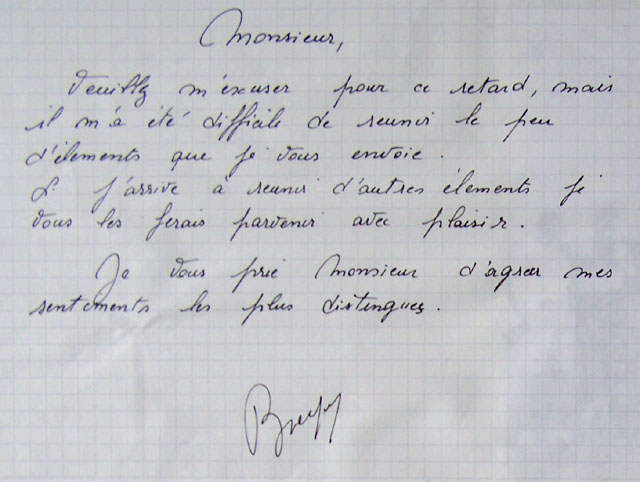 Monsieur,
Veuillez m'excuser pour ce retard, mais
il m'a été difficile de reunir le peu
d'élements que je vous envoie.
Si j'arrive à reunir d'autres élements je
vous les ferais parvenir avec plaisir.
Je vous prie Monsieur d'agreer mes
sentiments les plus distingues.